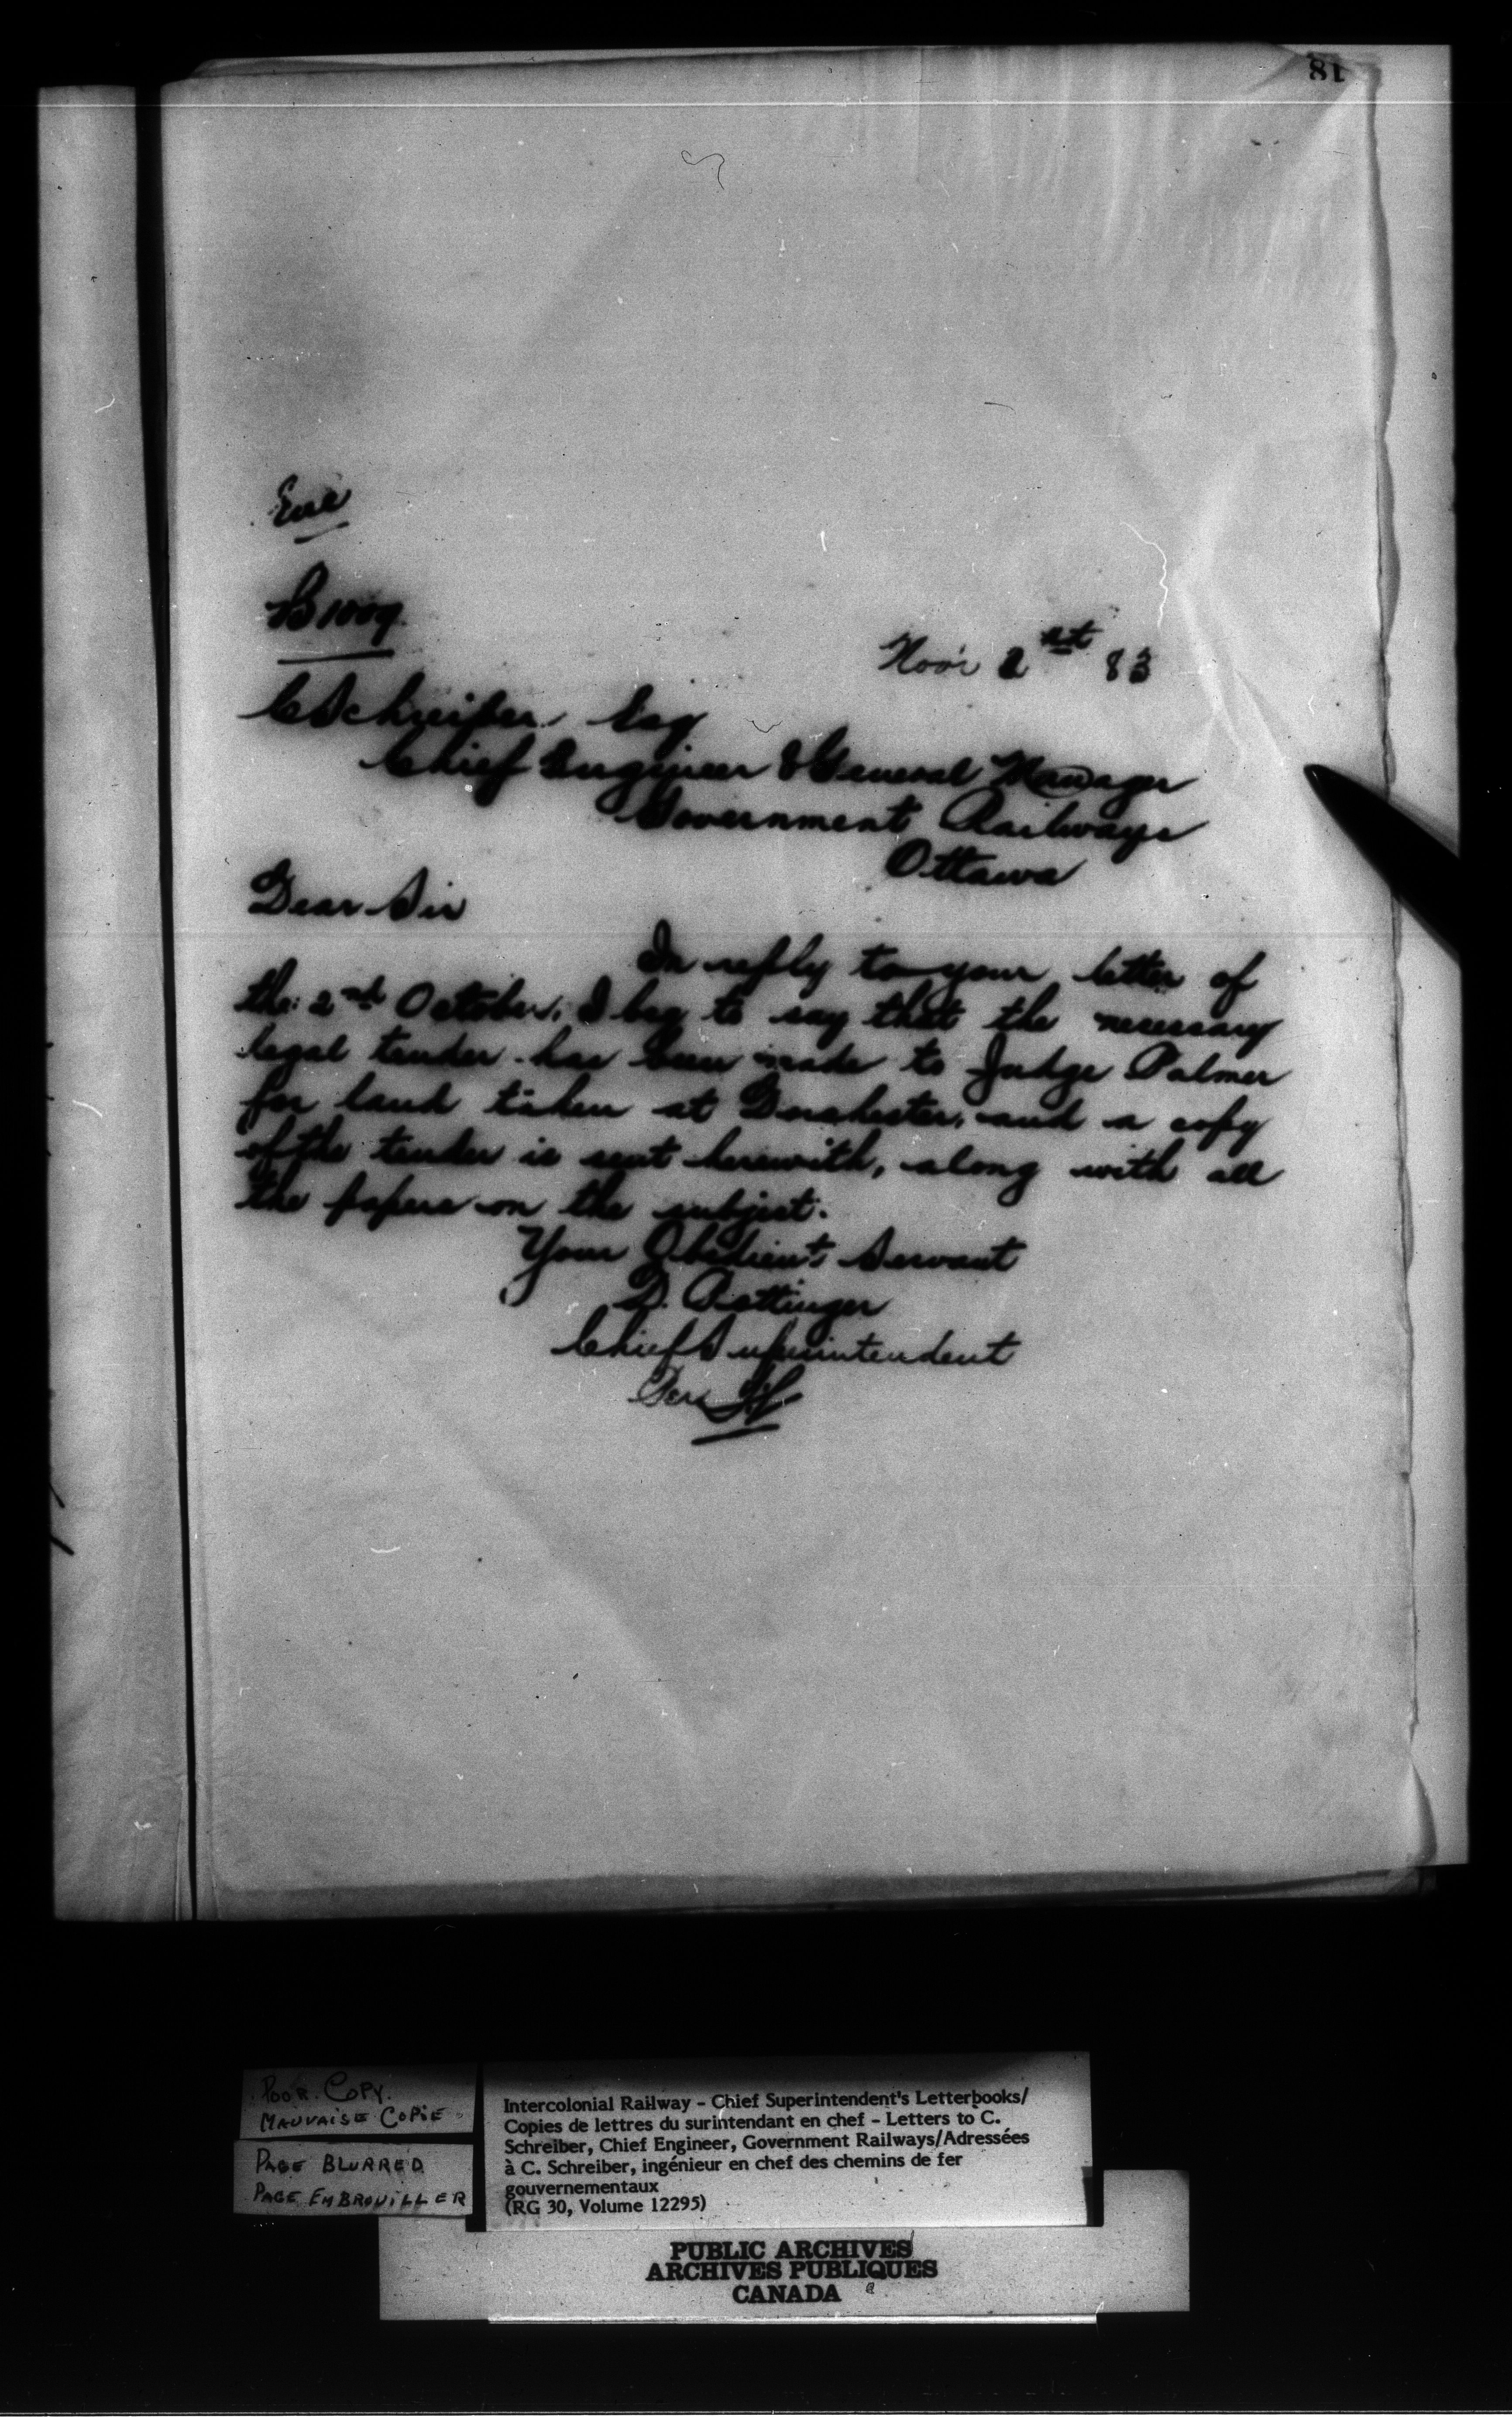 81
Enc
B1009
Nov'r 2nd 83
C Schreiber Esq
Chief Engineer & General Manager
Government Railways
Ottawa
Dear Sir
In reply to your letter of
the 2nd October, I beg to say that the necessary
legal tender has been made to Judge Palmer
for land taken at Dorchester, and a copy
of the tender is sent herewith, along with all
the papers on the subject.
Your Obedient Servant
D. Pottinger
Chief Superintendent
Per
POOR COPY.
MAUVAISE COPIE
PAGE BLURRED
PAGE EMBROUILLER
Intercolonial Railway - Chief Superintendent's Letterbooks/
Copies de lettres du surintendant en chef - Letters to C.
Schreiber, Chief Engineer, Government Railways/Adressées
à C. Schreiber, ingénieur en chef des chemins de fer
gouvernementaux
(RG 30, Volume 12295)
PUBLIC ARCHIVES
ARCHIVES PUBLIQUES
CANADA